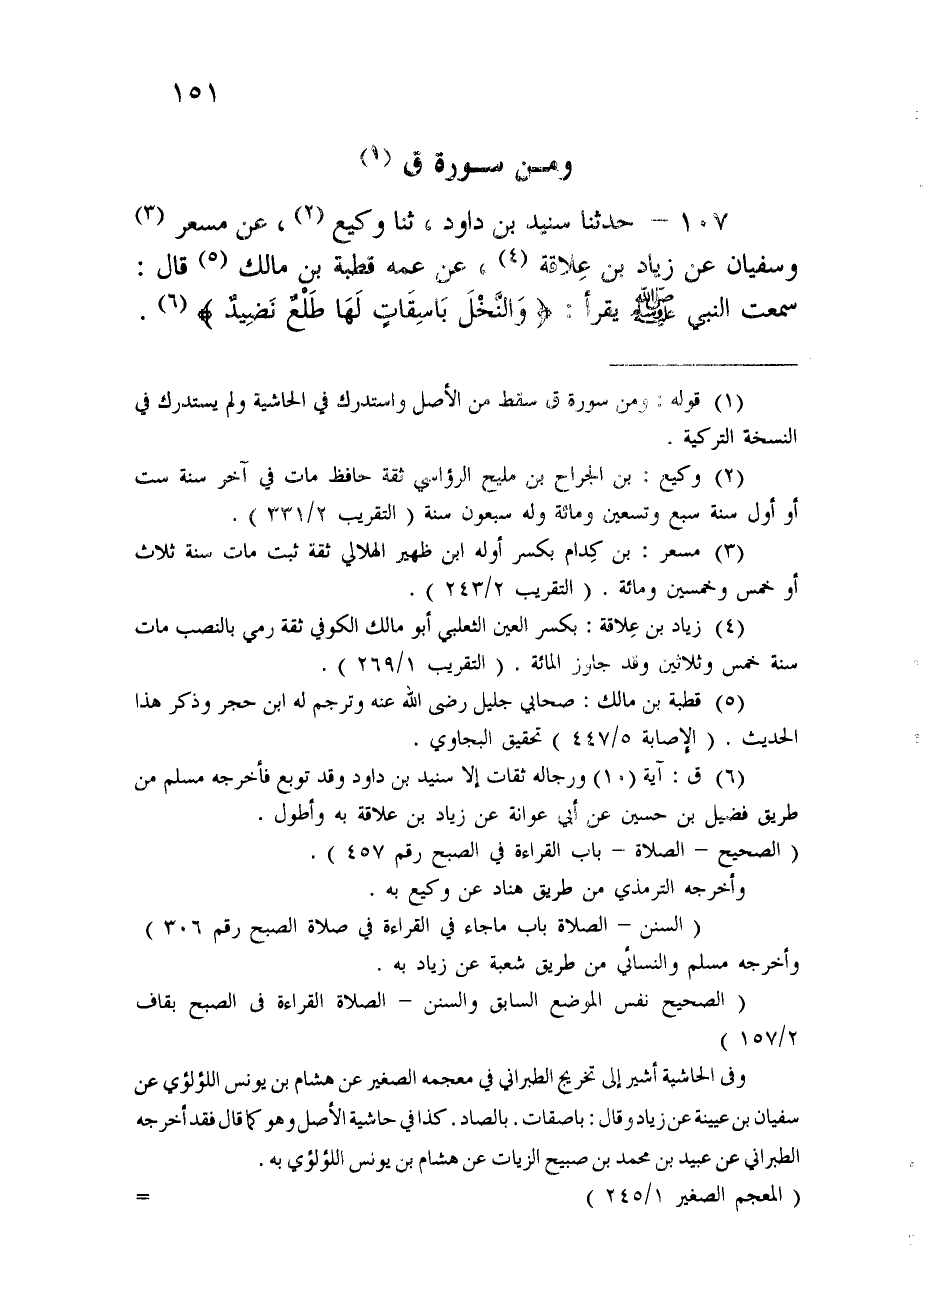 ١٥١
ومن سورة ق (١)
١٠٧ – حدثنا سنيد بن داود ، ثنا وكيع (٢) ، عن مسعر (٣)
وسفيان عن زياد بن عِلاقة (٤) ، عن عمه قطبة بن مالك (٥) قال :
سمعت النبي ﷺ يقرأ : ﴿ وَالنَّخْلَ بَاسِقَاتٍ لَهَا طَلْعٌ نَضِيدٌ ﴾ (٦) .
(١) قوله : ومن سورة ق سقط من الأصل واستدرك في الحاشية ولم يستدرك في
النسخة التركية .
(٢) وكيع : بن الجراح بن مليح الرؤاسي ثقة حافظ مات في آخر سنة ست
أو أول سنة سبع وتسعين ومائة وله سبعون سنة ( التقريب ٣٣١/٢ ) .
(٣) مسعر : بن كِدام بكسر أوله ابن ظهير الهلالي ثقة ثبت مات سنة ثلاث
أو خمس وخمسين ومائة . ( التقريب ٢٤٣/٢ ) .
(٤) زياد بن عِلاقة : بكسر العين الثعلبي أبو مالك الكوفي ثقة رمي بالنصب مات
سنة خمس وثلاثين وقد جاوز المائة . ( التقريب ٢٦٩/١ ) .
(٥) قطبة بن مالك : صحابي جليل رضى الله عنه وترجم له ابن حجر وذكر هذا
الحديث . ( الإصابة ٤٤٧/٥ ) تحقيق البجاوي .
(٦) ق : آية (١٠) ورجاله ثقات إلا سنيد بن داود وقد توبع فأخرجه مسلم من
طريق فضيل بن حسين عن أبي عوانة عن زياد بن علاقة به وأطول .
( الصحيح – الصلاة – باب القراءة في الصبح رقم ٤٥٧ ) .
وأخرجه الترمذي من طريق هناد عن وكيع به .
( السنن – الصلاة باب ماجاء في القراءة في صلاة الصبح رقم ٣٠٦ )
وأخرجه مسلم والنسائي من طريق شعبة عن زياد به .
( الصحيح نفس الموضع السابق والسنن – الصلاة القراءة فى الصبح بقاف
١٥٧/٢ )
وفى الحاشية أشير إلى تخريج الطبراني في معجمه الصغير عن هشام بن يونس اللؤلؤي عن
سفيان بن عيينة عن زياد وقال : باصقات . بالصاد . كذا في حاشية الأصل وهو كما قال فقد أخرجه
الطبراني عن عبيد بن محمد بن صبيح الزيات عن هشام بن يونس اللؤلؤي به .
( المعجم الصغير ٢٤٥/١ ) =